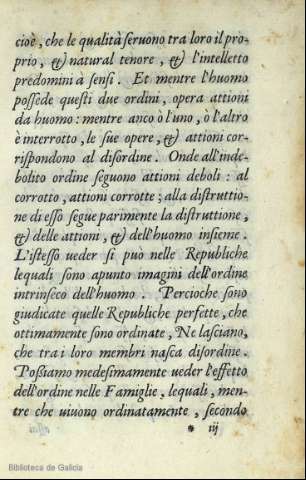 cioè, che le qualità seruono tra loro il pro-
prio, &) natural tenore, &) l'intelletto
predomini à sensi. Et mentre l'huomo
possede questi due ordini, opera attioni
da huomo: mentre anco ò l'uno, ò l'altro
è interrotto, le sue opere, &) attioni cor-
rispondono al disordine. Onde all'inde-
bolito ordine seguono attioni deboli: al
corrotto, attioni corrotte; alla distruttio-
ne di esso segue parimente la distruttione,
&) delle attioni, &) dell'huomo insieme.
L'istesso ueder si può nelle Republiche
lequali sono apunto imagini dell'ordine
intrinseco dell'huomo. Percioche sono
giudicate quelle Republiche perfette, che
ottimamente sono ordinate, Ne lasciano,
che tra i loro membri nasca disordine.
Possiamo medesimamente ueder l'effetto
dell'ordine nelle Famiglie, lequali, men-
tre che uiuono ordinatamente, secondo
* iij
Biblioteca de Galicia